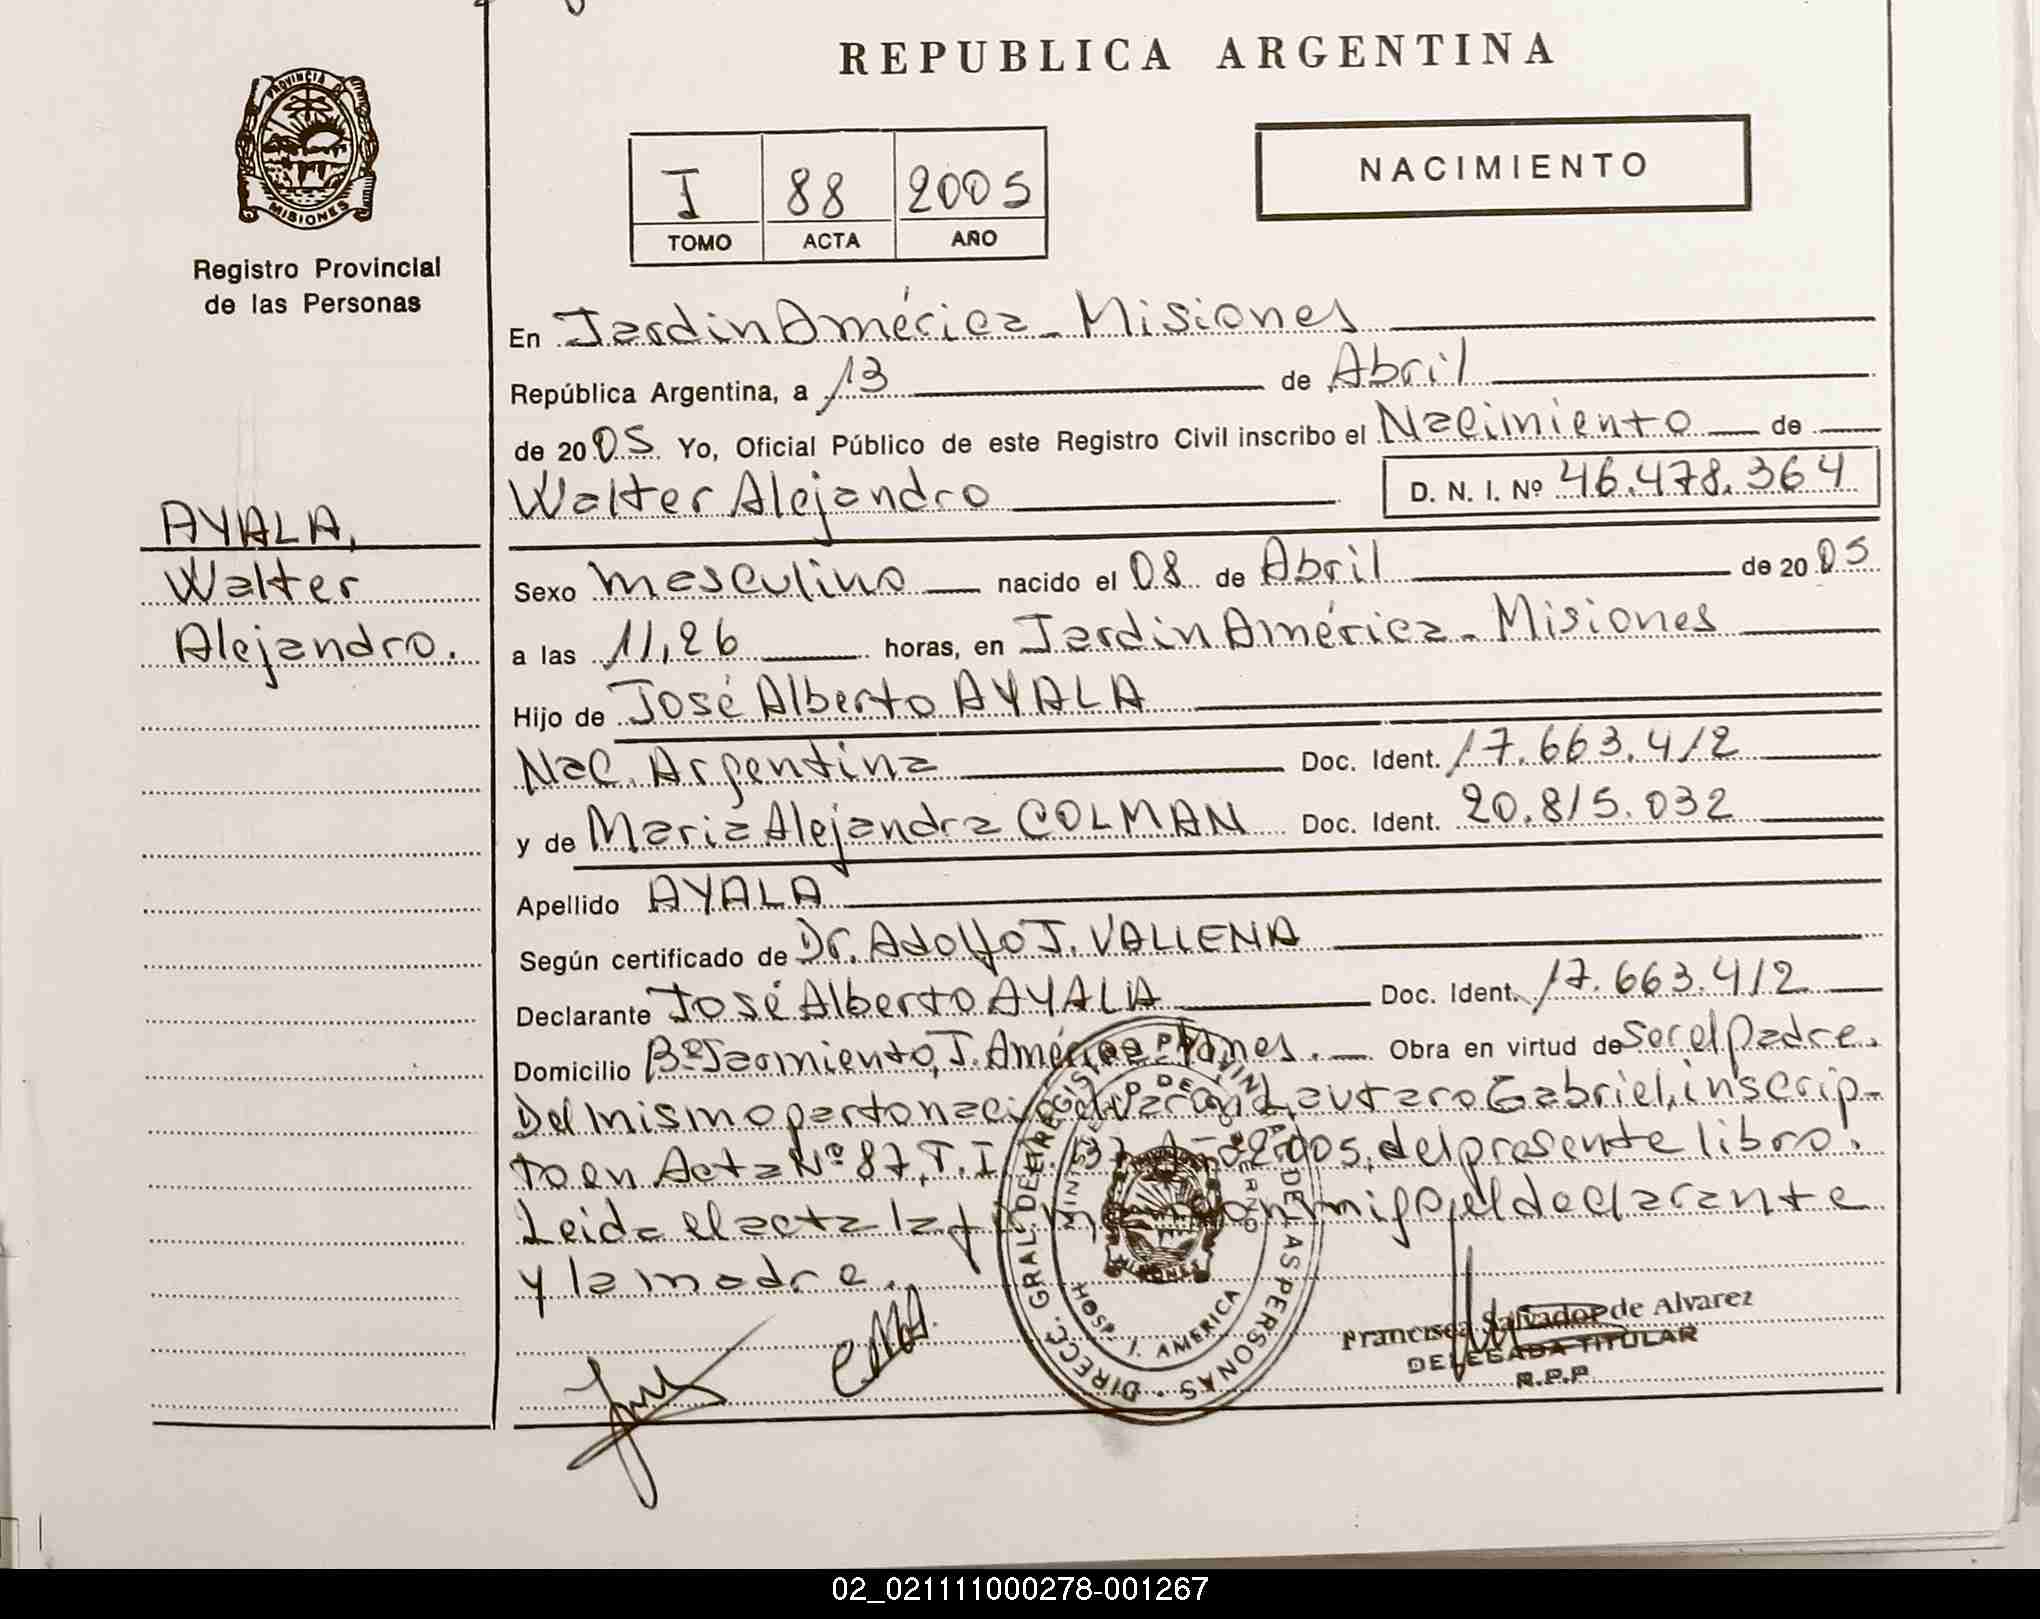 REPUBLICA ARGENTINA
PROVINCIA DE
MISIONES
Registro Provincial
de las Personas
I 88 2005
TOMO ACTA AÑO
NACIMIENTO
En Jardín América - Misiones
República Argentina, a 13 de Abril
de 2005 Yo, Oficial Público de este Registro Civil inscribo el Nacimiento de
Walter Alejandro D. N. I. Nº 46.478.364
AYALA,
Walter
Alejandro.
Sexo masculino nacido el 08 de Abril de 2005
a las 11,26 horas, en Jardín América - Misiones
Hijo de José Alberto AYALA
Nac. Argentina Doc. Ident. 17.663.412
y de Maria Alejandra COLMAN Doc. Ident. 20.815.032
Apellido AYALA
Según certificado de Dr. Adolfo J. VALLENA
Declarante José Alberto AYALA Doc. Ident. 17.663.412
Domicilio Bº Sarmiento, J. América Mnes. Obra en virtud de Ser el padre.
Del mismo parto nació el varón Lautaro Gabriel, inscrip-
to en Acta Nº 87, T. I, 2005, del presente libro.
Leida el acta la conmigo, el declarante
y la madre.
DIRECC. GRAL. DEL REGISTRO PROVINCIAL DE LAS PERSONAS
MINISTERIO DE GOBIERNO
MISIONES
HOSP. J. AMERICA
Francisca Salvador de Alvarez
DELEGADA TITULAR
R.P.P
02_021111000278-001267